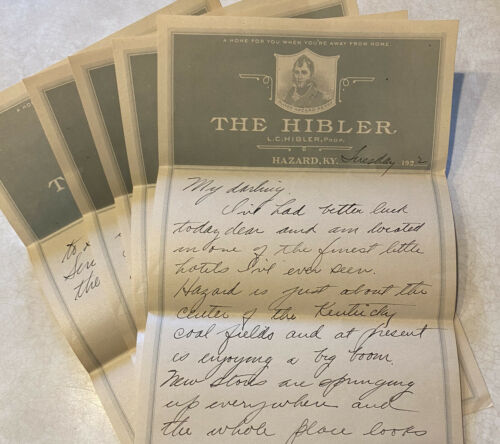 A HOME FOR YOU WHEN YOU'RE AWAY FROM HOME
THE HIBLER,
L.C. HIBLER, PROP.
HAZARD, KY. Tuesday 1922
My darling.
I've had better luck
today dear and am located
in one of the finest little
hotels I've ever seen.
Hazard is just about the
center of the Kentucky
coal fields and at present
is enjoying a big boom
New Stores are springing
up everywhere and
the whole place looks
A HO
T
to
the